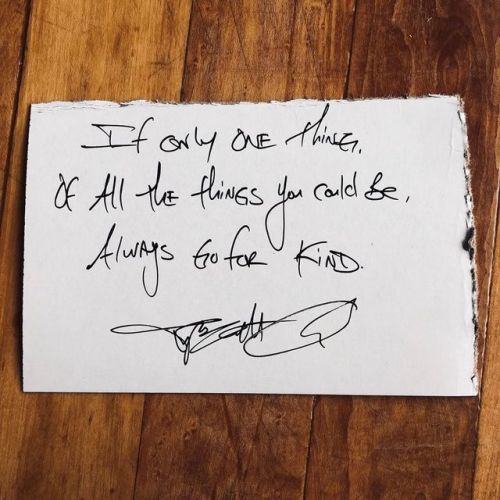 If only ONE thing,
Of All the things you could Be,
Always Go for KIND.